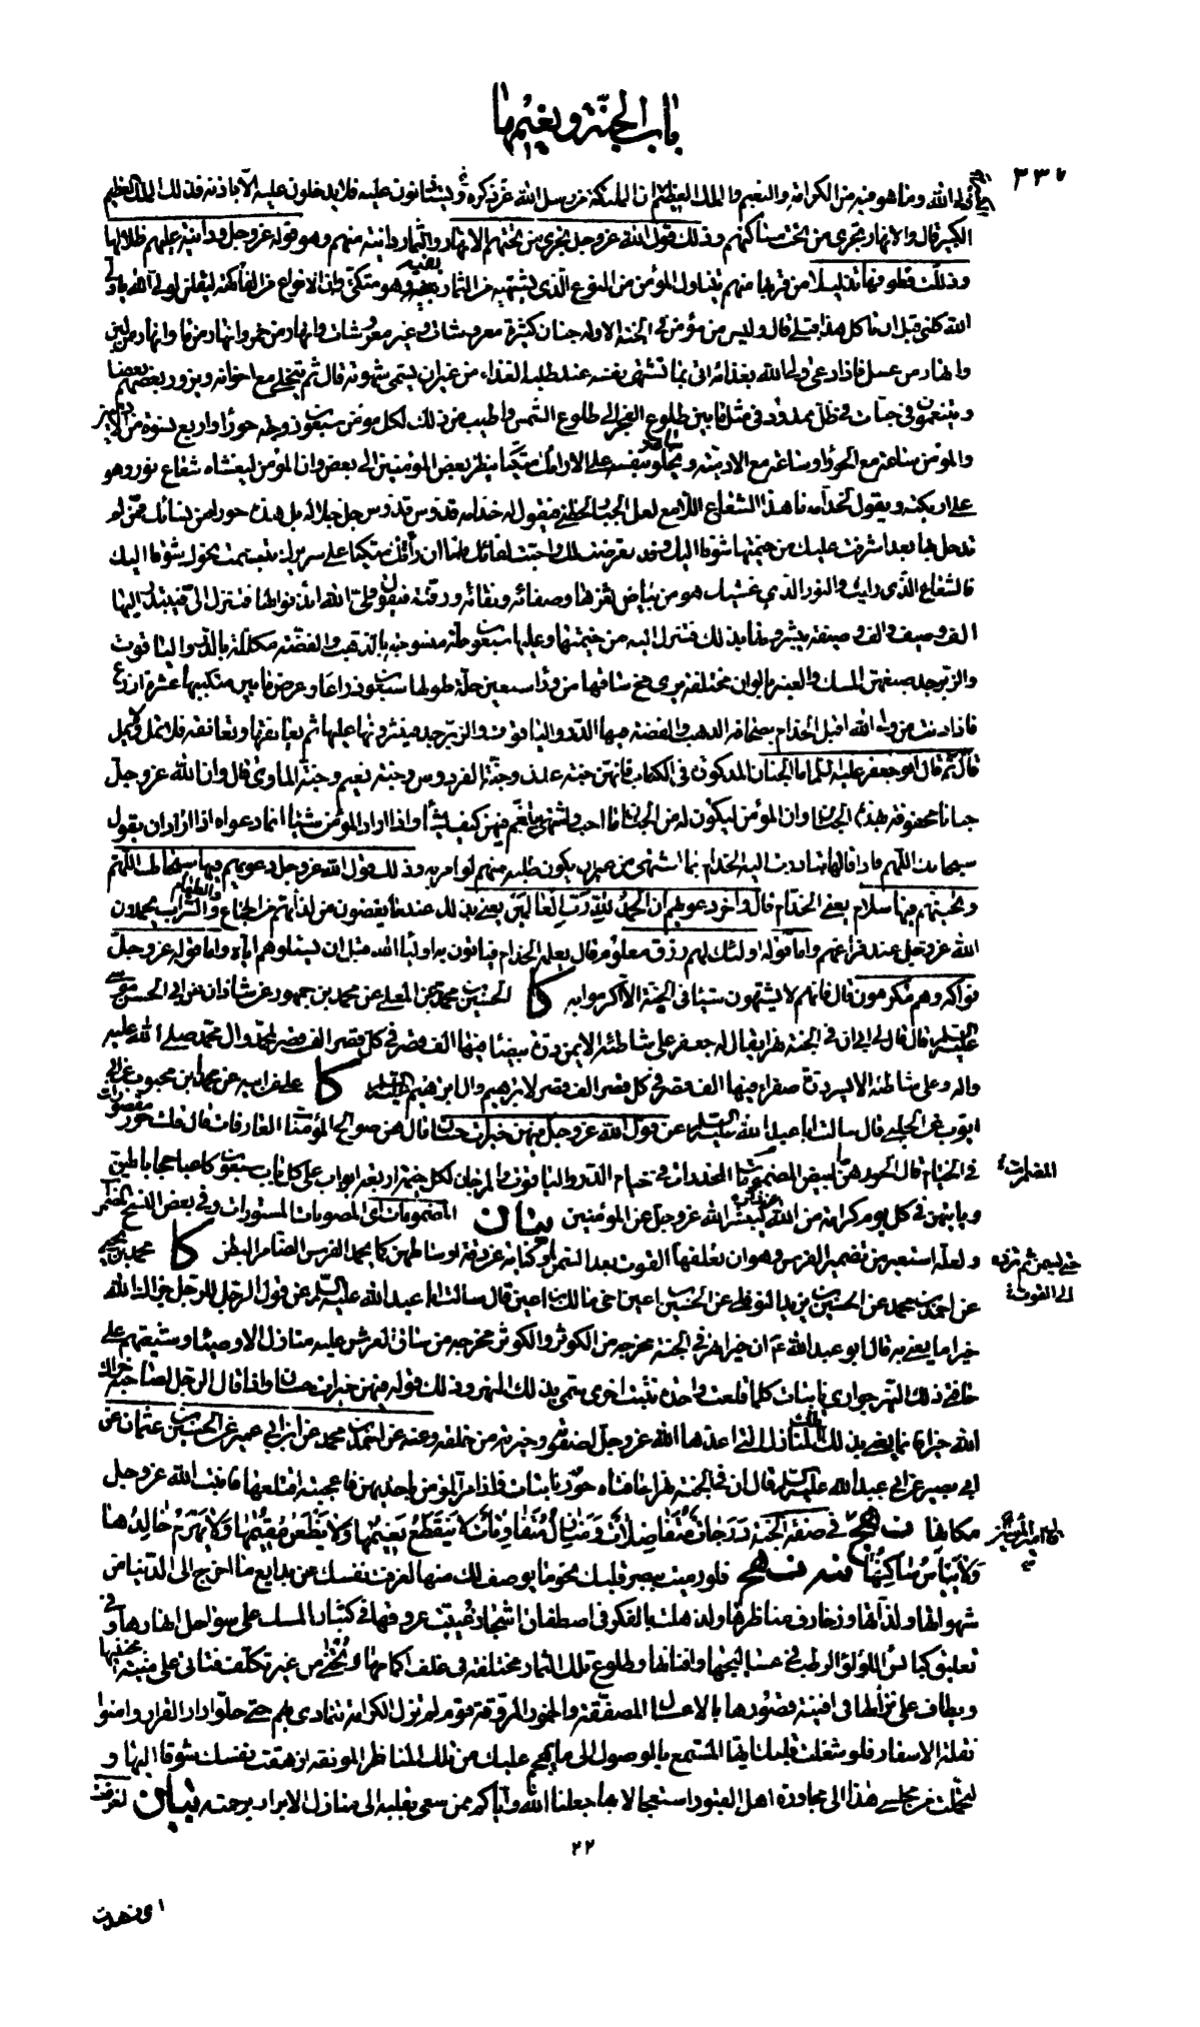 باب الجنة ونعيمها
٣٣٧
ولي الله وما هو فيه من الكرامة والنعيم والملك العظيم ان الملئكة من رسل الله عز ذكره يستأذنون عليه فلا يدخلون عليه الا باذنه فذلك الملك العظيم
الكبير قال والانهار تجري من تحت مساكنهم وذلك قول الله عز وجل تجري من تحتهم الانهار والثمار دانية منهم وهو قوله عز وجل ودانية عليهم ظلالها
وذللت قطوفها تذليلا من قربها منهم يتناول المؤمن من النوع الذي يشتهيه من الثمار بفيه وهو متكئ وان الانواع من الفاكهة ليقلن لولي الله يا ولي
الله كلني قبل ان تاكل هذا قبلي قال وليس من مؤمن في الجنة الا وله جنان كثيرة معروشات وغير معروشات وانهار من خمر وانهار من ماء وانهار من لبن
وانهار من عسل فاذا دعى ولي الله بغذائه اتى بما تشتهي نفسه عند طلبه الغذاء من غير ان يسمى شهوته قال ثم يتخلى مع اخوانه ويزور بعضهم بعضا
ويتنعمون في جنات في ظل ممدود في مثل ما بين طلوع الفجر الى طلوع الشمس واطيب من ذلك لكل مؤمن سبعون زوجة حوراء واربع نسوة من الادميين
والمؤمن ساعة مع الحوراء وساعة مع الادمية وساعة يخلو بنفسه على الارائك متكئا ينظر بعض المؤمنين الى بعض وان المؤمن ليغشاه شعاع نور وهو
على اريكته ويقول لخدامه ما هذا الشعاع اللامع لعل الجبار لحظني فيقول له خدامه قدوس قدوس جل جلاله بل هذه حوراء من نسائك ممن لم
تدخل بها بعد اشرفت عليك من خيمتها شوقا اليك وقد تعرضت لك واحبت لقائك فلما ان رأتك متكئا على سريرك تبسمت نحوك شوقا اليك
فالشعاع الذي رايت والنور الذي غشيك هو من بياض ثغرها وصفائه ونقائه ورقته فيقول ولي الله ائذنوا لها فتنزل الي فيبتدر اليها
الف وصيف والف وصيفة يبشرونها بذلك فتنزل اليه من خيمتها وعليها سبعون حلة منسوجة بالذهب والفضة مكللة بالدر والياقوت
والزبرجد صبغهن المسك والعنبر بالوان مختلفة يرى مخ ساقها من وراء سبعين حلة طولها سبعون ذراعا وعرض ما بين منكبيها عشرة اذرع
فاذا دنت من ولي الله اقبل الخدام بصحائف الذهب والفضة فيها الدر والياقوت والزبرجد فينثرونها عليها ثم يعانقها وتعانقه فلا تمل ولا يمل
قال ثم قال ابو جعفر عليه السلام اما الجنان المذكورة في الكتاب فانهن جنة عدن وجنة الفردوس وجنة نعيم وجنة الماوى قال وان لله عز وجل
جنانا محفوفة بهذه الجنان وان المؤمن ليكون له من الجنان ما احب واشتهى يتنعم فيهن كيف يشاء واذا اراد المؤمن شيئا انما دعواه اذا اراد ان يقول
سبحانك اللهم فاذا قالها تبادرت اليه الخدام بما اشتهى من غير ان يكون طلبه منهم او امر به وذلك قول الله عز وجل دعويهم فيها سبحانك اللهم
وتحيتهم فيها سلام يعني الخدام قال واخر دعويهم ان الحمد لله رب العالمين يعني بذلك عند ما يقضون من لذاتهم من الجماع والطعام والشراب يحمدون
الله عز وجل عند فراغهم واما قوله اولئك لهم رزق معلوم قال يعلمه الخدام فياتون به اولياء الله قبل ان يسئلوهم اياه واما قوله عز وجل
فواكه وهم مكرمون قال فانهم لا يشتهون شيئا في الجنة الا اكرموا به كا الحسين بن محمد عن المعلى عن محمد بن جمهور عن شاذان عن ابي الحسن موسى
عليه السلم قال قال لي ابي ان في الجنة نهرا يقال له جعفر على شاطئه الايمن درة بيضاء فيها الف قصر في كل قصر الف قصر لمحمد وال محمد صلى الله عليه
واله وعلى شاطئه الايسر درة صفراء فيها الف قصر في كل قصر الف قصر لابرهيم وال ابرهيم عليه السلم كا علي عن ابيه عن ابن محبوب عن ابي
ايوب عن الحلبي قال سالت ابا عبد الله عليه السلم عن قول الله عز وجل فيهن خيرات حسان قال هن صوالح المؤمنات العارفات قال قلت حور مقصورات
في الخيام قال الحور هن البيض المضمومات المخدرات في خيام الدر والياقوت والمرجان لكل خيمة اربعة ابواب على كل باب سبعون كاعبا حجابا لهن
المضمرات
وياتيهن في كل يوم كرامة من الله عز ذكره ليبشر الله عز وجل بهن المؤمنين بيان المضمومات اي المصونات المستورات وفي بعض النسخ المضمرات
ولعله استعير من تضمير الفرس وهو ان تعلفها القوت بعد السمن او كناية عن دقة اوساطهن كما يحمد الفرس الضامر البطن كا محمد بن يحيى
حتى يسمن ثم ترده الى القوت
عن احمد بن محمد عن الحسين بن يزيد النوفلي عن الحسين بن اعين اخي مالك بن اعين قال سالت ابا عبد الله عليه السلم عن قول الرجل للرجل جزاك الله
خيرا ما يعني به قال ابو عبد الله ع ان خيرا نهر في الجنة مخرجه من الكوثر والكوثر مخرجه من ساق العرش عليه منازل الاوصياء وشيعتهم على
حافتي ذلك النهر جواري نابتات كلما قلعت واحدة نبتت اخرى سمي بذلك النهر وذلك قوله فيهن خيرات حسان واذا قال الرجل لصاحبه جزاك
الله خيرا فانما يعني بذلك تلك المنازل التي اعدها الله عز وجل لصفوته وخيرته من خلقه وعنه عن احمد بن محمد عن ابن ابي عمير عن الحسين بن عثمان عن
ابي بصير عن ابي عبد الله عليه السلم قال ان في الجنة نهرا حافتاه حور نابتات فاذا مر المؤمن باحديهن فاعجبته اقتلعها فانبت الله عز وجل
مكانها نهج في صفة الجنة درجات متفاضلات ومنازل متفاوتات لا ينقطع نعيمها ولا يظعن مقيمها ولا يهرم خالدها
ولا يبأس ساكنها ومنه نهج فلو رميت ببصر قلبك نحو ما يوصف لك منها لعزفت نفسك عن بدايع ما اخرج الى الدنيا من
شهواتها ولذاتها وزخارف مناظرها ولذهلت بالفكر في اصطفاق اشجار غيبت عروقها في كثبان المسك على سواحل انهارها وفي
تعليق كبائس اللؤلؤ الرطب في عساليجها وافنانها وطلوع تلك الثمار مختلفة في غلف اكمامها تجنى من غير تكلف فتاتي على منية مجتنيها
ويطاف على نزالها في افنية قصورها بالاعسال المصفقة والخمور المروقة قوم لم تزل الكرامة تتمادى بهم حتى حلوا دار القرار وامنوا
نقلة الاسفار فلو شغلت قلبك ايها المستمع بالوصول الى ما يهجم عليك من تلك المناظر المونقة لزهقت نفسك شوقا اليها و
لتحملت من مجلسي هذا الى مجاورة اهل القبور استعجالا بها جعلنا الله واياكم ممن سعى بقلبه الى منازل الابرار برحمته بيان لعزفت
٢٢
اي زهدت